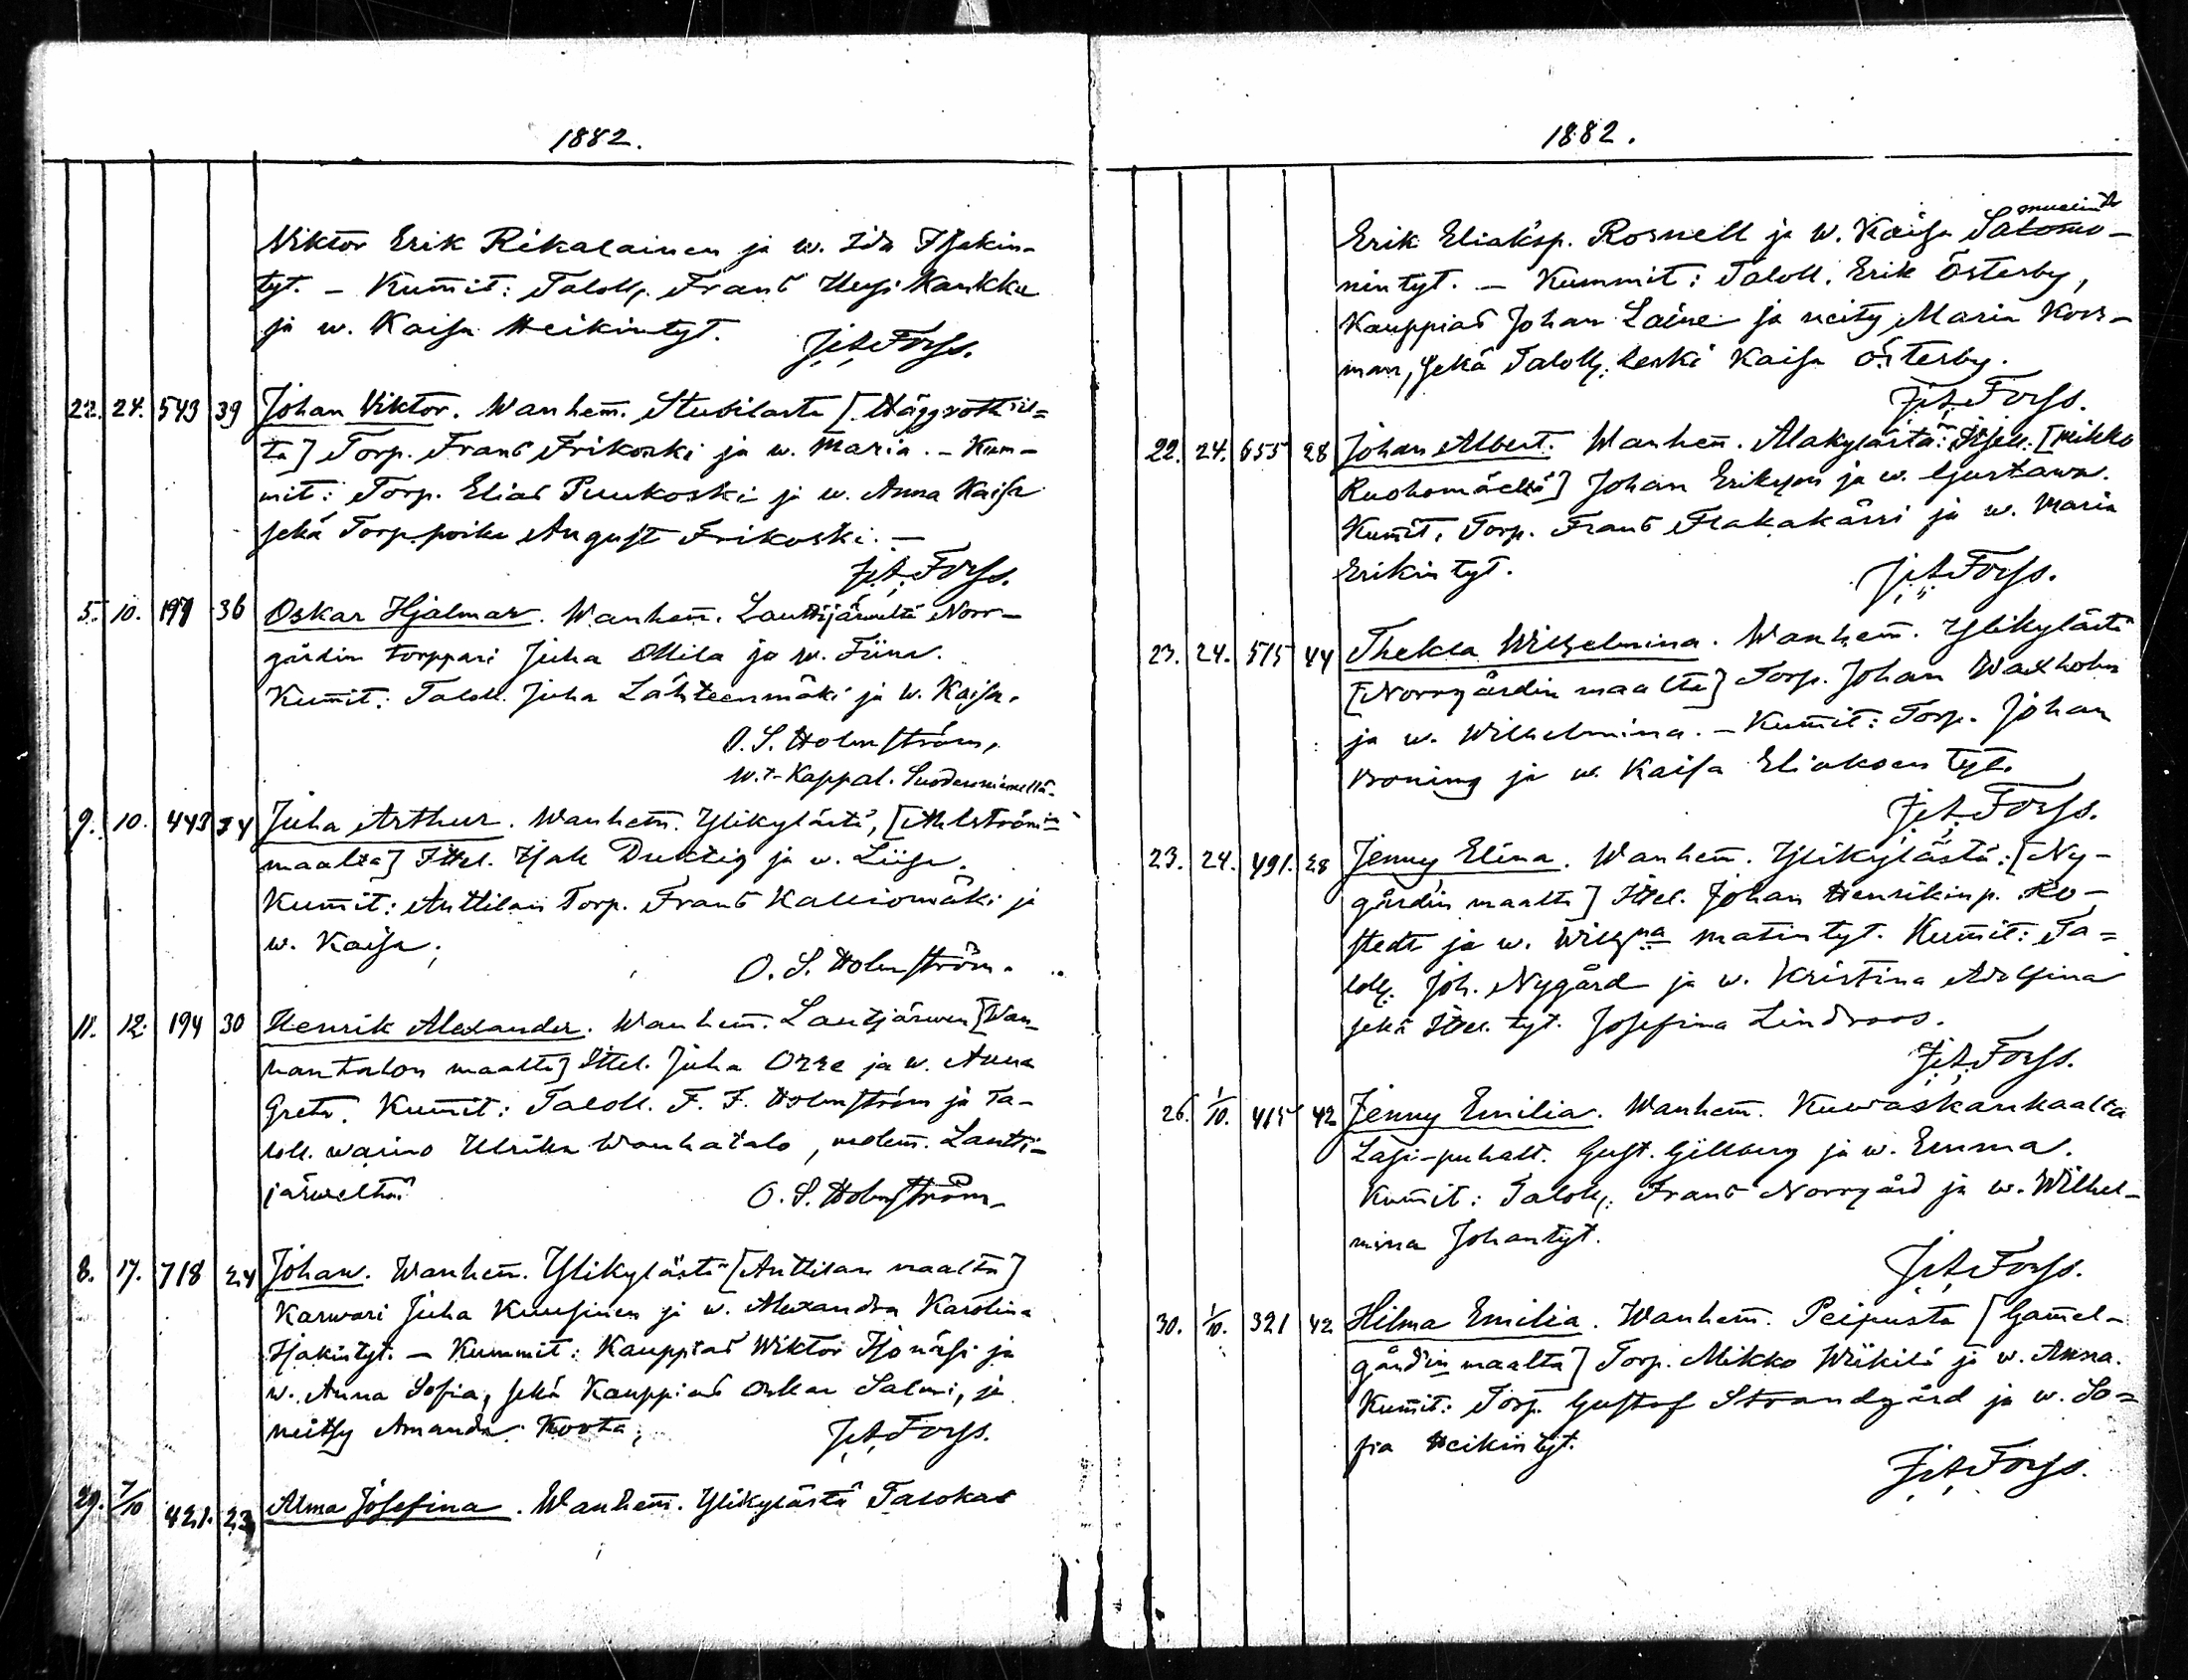 1882.
Viktor Erik Rikalainen ja w. Ida Isakin-
tyt. – Kum̅it: Taloll. Frans Uusi Kaukka
ja w. Kaisa Heikintyt.
J.A. Forss.
22. 24. 543 39 Johan Viktor. Wanhem̅. Stubilasta [Häggrothil=
ta] Torp. Frans Frikoski ja w. Maria. – Kum-
mit: Torp. Elias Puukoski ja w. Anna Kaisa
sekä Torp. poika August Frikoski. –
J.A. Forss.
5. 10. 197 36 Oskar Hjalmar. Wanhem̅. Lauttijärweltä Norr-
gårdin torppari Juha Ollila ja w. Fiina.
Kum̅it: Taloll. Juha Lähteenmäki ja w. Kaisa.
O. S. Holmström,
w.t. Kappal. Suodenniemellä.
9. 10. 443 34 Juha Arthur. Wanhem̅. Ylikylästä, [Ahlströmin
maalta] Ittel. Isak Duktig ja w. Liisa.
Kum̅it: Anttilan Torp. Frans Kalliomäki ja
w. Kaisa;
O. S. Holmström.
11. 12. 194 30 Henrik Alexander. Wanhem̅. Lautjärwen [Wan-
hantalon maalta] Ittel. Juha Orre ja w. Anna
Greta. Kum̅it: Taloll. F. F. Holmström ja Ta-
loll. waimo Ulrika Wanhatalo, molem̅. Lautti-
järweltä.
O. S. Holmström.
8. 17. 718 24 Johan. Wanhem̅. Ylikylästä [Anttilan maalta]
Karwari Juha Kuusinen ja w. Alexandra Karolina
Isakintyt. – Kummit: Kauppias Wiktor Isonäsi ja
w. Anna Sofia, sekä Kauppias Oskar Salmi, ja
neitsy Amanda Koota;
J.A. Forss.
29. 7/10 421. 23 Alma Josefina. Wanhem̅. Ylikylästä Talokas
1882.
Erik Eliaksp. Rosnell ja w. Kaisa Salomo-
nintyt. – Kummit: Taloll. Erik Österby,
Kauppias Johan Laine ja neity Maria Kors-
man, sekä Taloll. leski Kaisa Österby.
J.A. Forss.
22. 24. 655 28 Johan Albert. Wanhem̅. Alakylästä: Itsell. [Mikko
Ruohomäeltä] Johan Erikson ja w. Gustawa.
Kum̅it, Torp. Frans Flakakärri ja w. Maria
Erikintyt.
J.A. Forss.
23. 24. 515 44 Thekla Wilhelmina. Wanhem̅. Ylikylästä
[Norrgårdin maalta] Torp. Johan Waxholm
ja w. Wilhelmina. – Kum̅it: Torp. Johan
Broning ja w. Kaisa Eliaksentyt.
J.A. Forss.
23. 24. 491. 28 Jenny Elina. Wanhem̅. Ylikylästä: [Ny-
gårdin maalta] Ittel. Johan Henrikinp. Ro-
stedt ja w. Wilhna Matintyt. Kum̅it: Ta=
loll. Joh. Nygård ja w. Kristina Adolfina
sekä Ittel. tyt. Josefina Lindroos.
J.A. Forss.
26. 1/10. 415 42 Jenny Emilia. Wanhem̅. Kuwaskankaalta
Lasi-puhalt. Gust. Gillberg ja w. Emma.
Kum̅it: Taloll. Frans Norrgård ja w. Wilhel-
mina Johantyt.
J.A. Forss.
30. 1/10. 321 42 Hilma Emilia. Wanhem̅. Peipusta [Gam̅el-
gårdin maalta] Torp. Mikko Wiikilä ja w. Anna.
Kum̅it: Torp. Gustaf Strandgård ja w. So=
fia Heikintyt.
J.A. Forss.